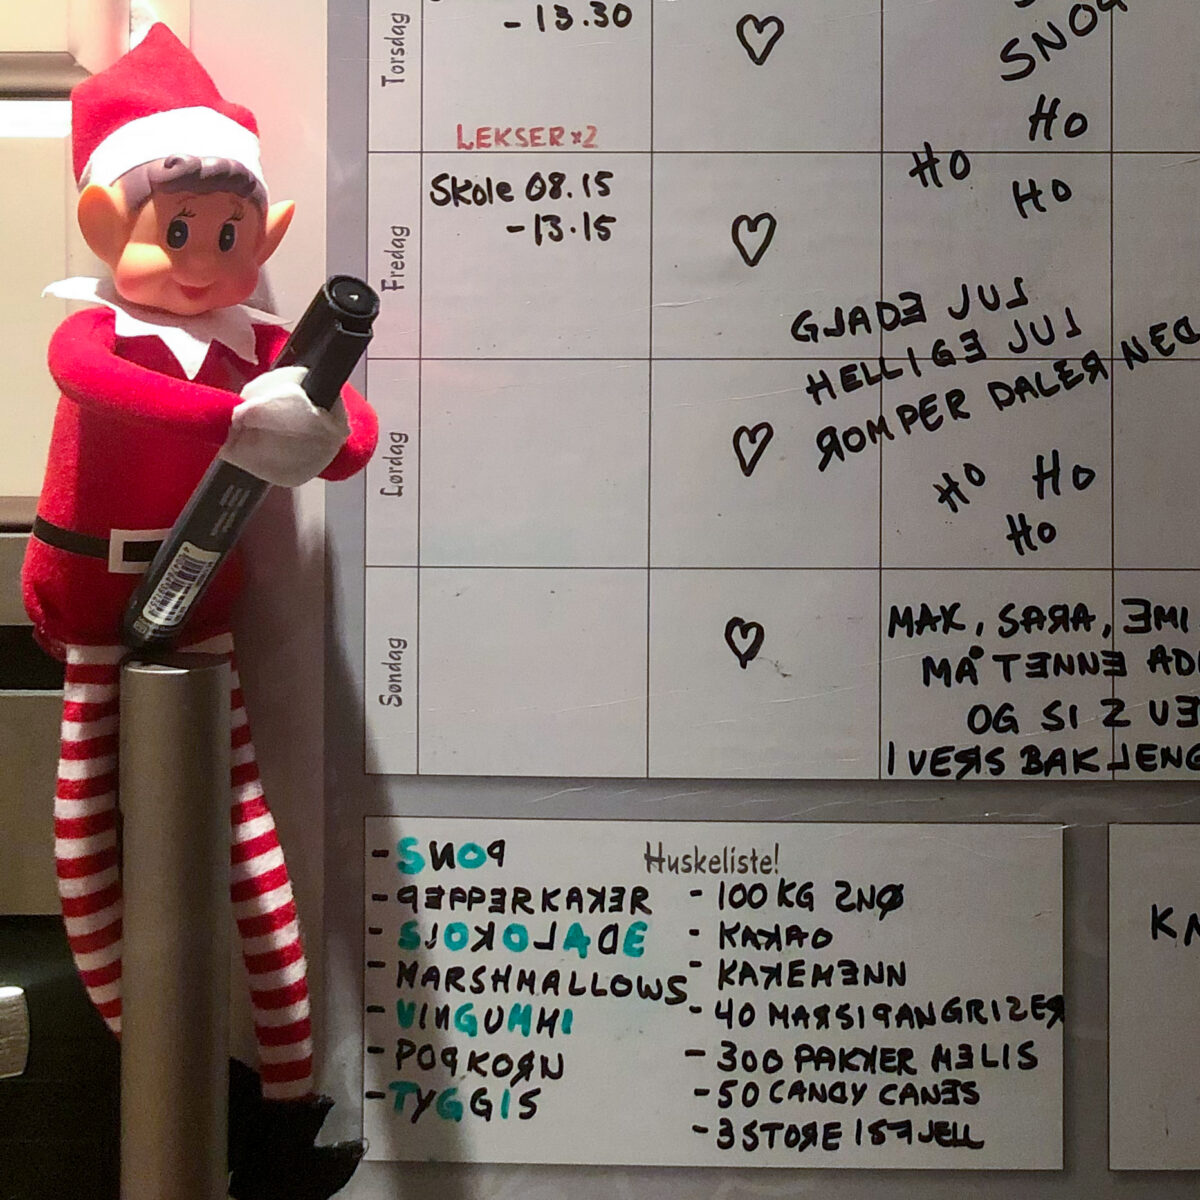 Torsdag
- 13.30
LEKSER x2
SNOP
HO
HO
HO
Fredag
Skole 08.15
- 13.15
GLADE JUL
HELLIGE JUL
ROMPER DALER NED
Lørdag
HO HO
HO
Søndag
MAX, SARA, EMI
MÅ TENNE AD
OG SI 2 VE
1 VERS BAKLENG
Huskeliste!
- SNOP
- PEPPERKAKER
- SJOKOLADE
- MARSHMALLOWS
- VINGUMMI
- POPKORN
- TYGGIS
- 100 KG SNØ
- KAKAO
- KAKEMENN
- 40 MARSIPANGRISER
- 300 PAKKER MELIS
- 50 CANDY CANES
- 3 STORE ISFJELL